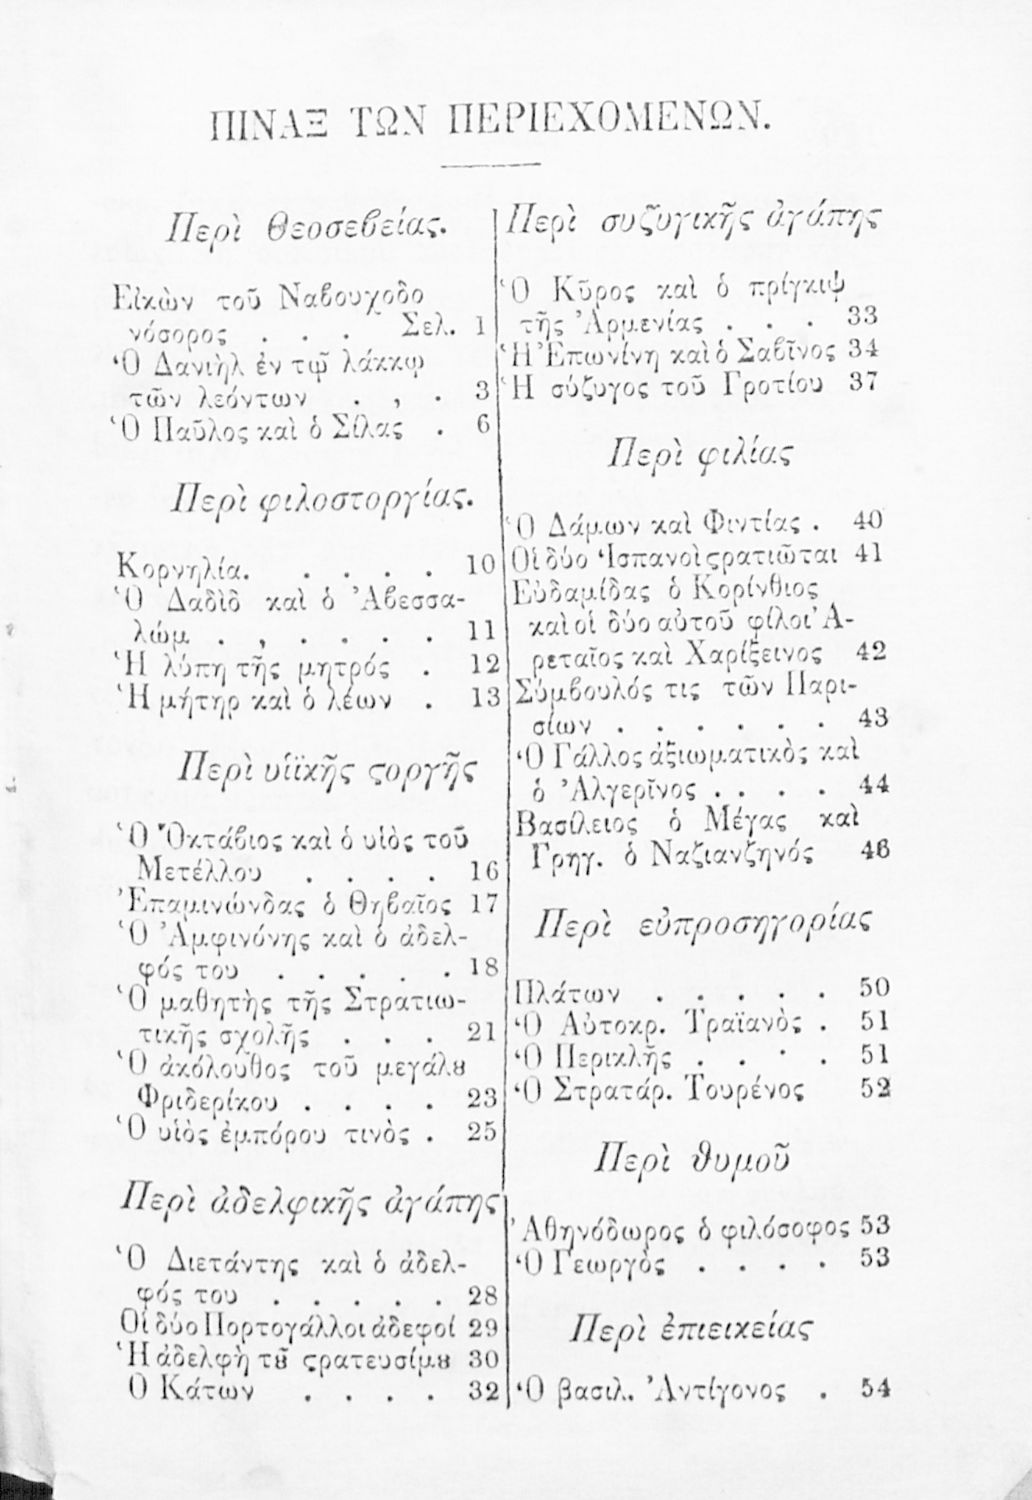 ΠΙΝΑΞ ΤΩΝ ΠΕΡΙΕΧΟΜΕΝΩΝ.
Περὶ θεοσεβείας.
Εἰκὼν τοῦ Ναβουχοδο
νόσορος . . . Σελ. 1
Ὁ Δανιὴλ ἐν τῷ λάκκῳ
τῶν λεόντων . , . 3
Ὁ Παῦλος καὶ ὁ Σίλας . 6
Περὶ φιλοστοργίας.
Κορνηλία. . . . . 10
Ὁ Δαδὶδ καὶ ὁ Ἀβεσσα-
λώμ . , . . . . 11
Ἡ λύπη τῆς μητρός . 12
Ἡ μήτηρ καὶ ὁ λέων . 13
Περὶ υἱϊκῆς ϛοργῆς
Ὁ Ὀκτάβιος καὶ ὁ υἱὸς τοῦ
Μετέλλου . . . . 16
Ἐπαμινώνδας ὁ Θηβαῖος 17
Ὁ Ἀμφινόνης καὶ ὁ ἀδελ-
φός του . . . . . 18
Ὁ μαθητὴς τῆς Στρατιω-
τικῆς σχολῆς . . . 21
Ὁ ἀκόλουθος τοῦ μεγάλȣ
Φριδερίκου . . . . 23
Ὁ υἱὸς ἐμπόρου τινὸς . 25
Περὶ ἀδελφικῆς ἀγάπης
Ὁ Διετάντης καὶ ὁ ἀδελ-
φός του . . . . . 28
Οἱ δύο Πορτογάλλοι ἀδεφοί 29
Ἡ ἀδελφὴ τȣ͂ ϛρατευσίμȣ 30
Ὁ Κάτων . . . . 32
Περὶ συζυγικῆς ἀγάπης
Ὁ Κῦρος καὶ ὁ πρίγκιψ
τῆς Ἀρμενίας . . . 33
Ἡ Ἐπωνίνη καὶ ὁ Σαβῖνος 34
Ἡ σύζυγος τοῦ Γροτίου 37
Περὶ φιλίας
Ὁ Δάμων καὶ Φιντίας . 40
Οἱ δύο Ἱσπανοὶ ϛρατιῶται 41
Εὐδαμίδας ὁ Κορίνθιος
καὶ οἱ δύο αὐτοῦ φίλοι Ἀ-
ρεταῖος καὶ Χαρίξεινος 42
Σύμβουλός τις τῶν Παρι-
σίων . . . . . . 43
Ὁ Γάλλος ἀξιωματικὸς καὶ
ὁ Ἀλγερῖνος . . . . 44
Βασίλειος ὁ Μέγας καὶ
Γρηγ. ὁ Ναζιανζηνός 46
Περὶ εὐπροσηγορίας
Πλάτων . . . . . 50
Ὁ Αὐτοκρ. Τραϊανὸς . 51
Ὁ Περικλῆς . . . . 51
Ὁ Στρατάρ. Τουρένος 52
Περὶ θυμοῦ
Ἀθηνόδωρος ὁ φιλόσοφος 53
Ὁ Γεωργὸς . . . . 53
Περὶ ἐπιεικείας
Ὁ βασιλ. Ἀντίγονος . 54